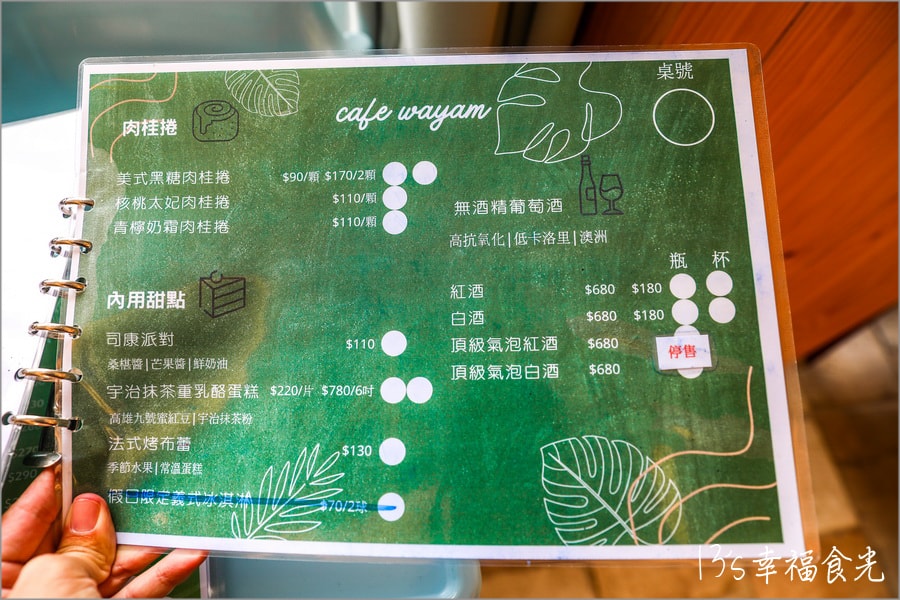 cafe wayam
桌號
肉桂捲
美式黑糖肉桂捲 $90/顆 $170/2顆
核桃太妃肉桂捲 $110/顆
青檸奶霜肉桂捲 $110/顆
內用甜點
司康派對 $110
桑椹醬|芒果醬|鮮奶油
宇治抹茶重乳酪蛋糕 $220/片 $780/6吋
高雄九號蜜紅豆|宇治抹茶粉
法式烤布蕾 $130
季節水果|常溫蛋糕
假日限定義式冰淇淋 $70/2球
無酒精葡萄酒
高抗氧化|低卡洛里|澳洲
瓶 杯
紅酒 $680 $180
白酒 $680 $180
頂級氣泡紅酒 $680
停售
頂級氣泡白酒 $680
13's幸福食光